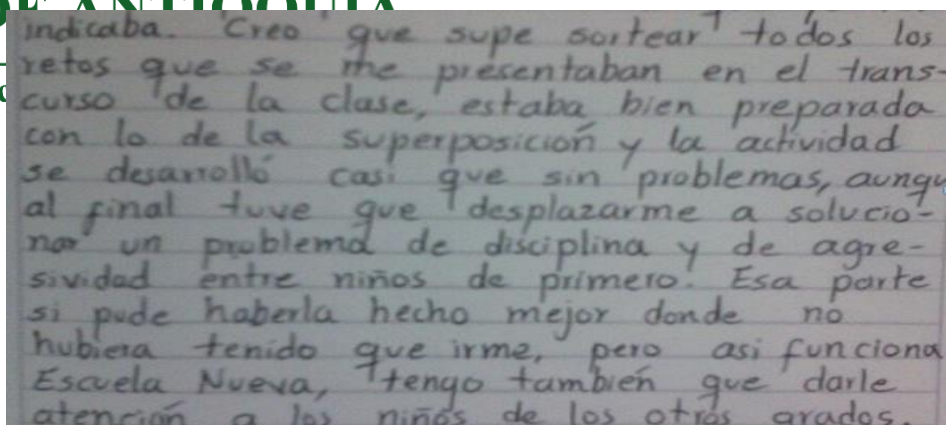 DE ANTIOQUIA
indicaba. Creo que supe sortear todos los
retos que se me presentaban en el trans-
curso de la clase, estaba bien preparada
con lo de la superposición y la actividad
se desarrolló casi que sin problemas, aunqu
al final tuve que desplazarme a solucio-
nar un problema de disciplina y de agre-
sividad entre niños de primero. Esa parte
si pude haberla hecho mejor donde no
hubiera tenido que irme, pero asi funciona
Escuela Nueva, tengo también que darle
atención a los niños de los otros grados.